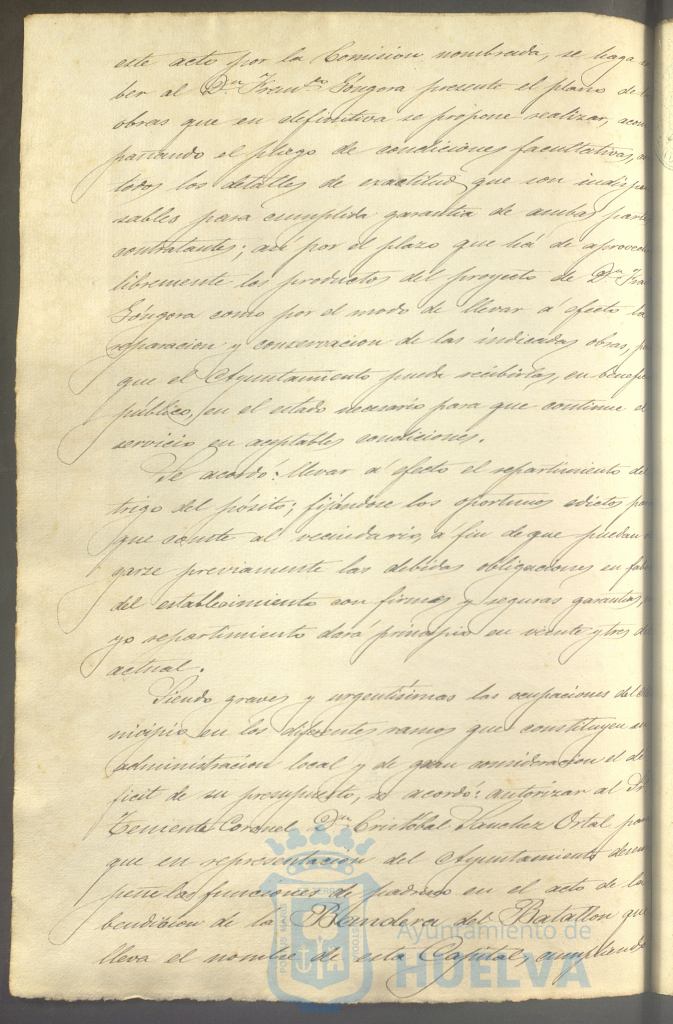 este acto por la Comision nombrada, se haga
ber al Dn. Franco. Góngora presente el plano de
obras que en definitiva se propone realizar, acom
pañando el pliego de condiciones facultativas,
todos los detalles de exactitud que son indispen
sables para cumplida garantia de ambas partes
contratantes; asi por el plazo que há de aprovech
libremente los productos del proyecto de Dn. Fra
Góngora como por el modo de llevar á efecto la
reparacion y conservacion de las indicadas obras,
que el Ayuntamiento pueda recibirlas, en benefi
público, en el estado necesario para que continue el
servicio en aceptables condiciones.
Se acordó: llevar á efecto el repartimiento del
trigo del pósito; fijándose los oportunos edictos pa
que conste al vecindario, á fin de que puedan
garse previamente las debidas obligaciones en fa
del establecimiento con firmes y seguras garantias,
yo repartimiento dará principio en veinte y tres de
actual.
Siendo graves y urgentísimas las ocupaciones del Mu
nicipio en los diferentes ramos que constituyen su
administracion local y de gran consideracion el de
ficit de su presupuesto, se acordó: autorizar al Sr
Teniente Coronel Dn. Cristóbal Sanchez Ortal pa
que en representacion del Ayuntamiento desem
peñe las funciones de padrino en el acto de la
bendicion de la Bandera del Batallon que
lleva el nombre de esta Capital, cumpliendo
Ayuntamiento de
HUELVA